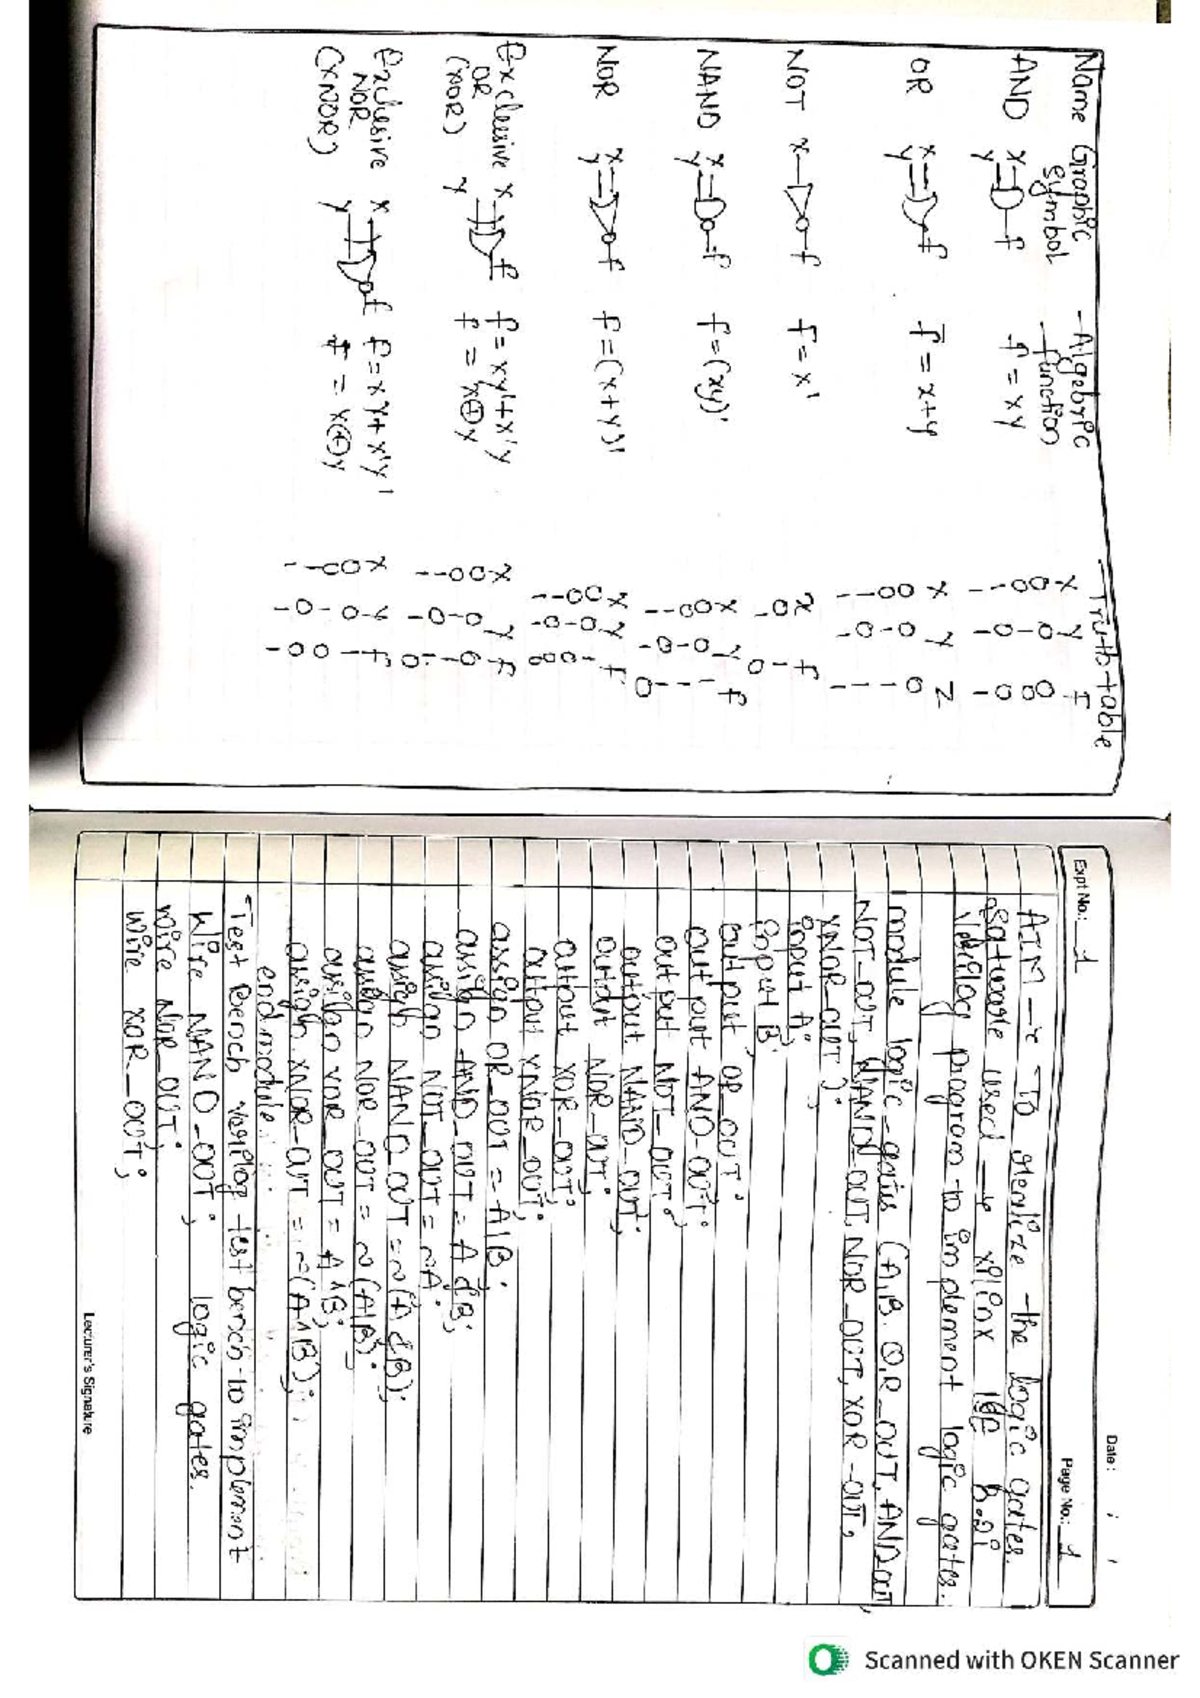 Name Graphic symbol -Algebric function Truth table
AND x y f f = xy
x y F
0 0 0
0 1 0
1 0 0
1 1 1
OR x y f F = x+y
x y z
0 0 0
0 1 1
1 0 1
1 1 1
NOT x f F = x'
x f
0 1
1 0
NAND x y f f = (xy)'
x y f
0 0 1
0 1 1
1 0 1
1 1 0
NOR x y f F = (x+y)'
x y f
0 0 1
0 1 0
1 0 0
1 1 0
Exclusive OR (XOR) x y f f = xy'+x'y
f = x⊕y
x y f
0 0 0
0 1 1
1 0 1
1 1 0
Exclusive NOR (XNOR) x y f F = xy+x'y'
F = x⊕y
x y f
0 0 1
0 1 0
1 0 0
1 1 1
Date :
Expt No.: 1 Page No.: 1
AIM → To realize the logic gates.
Software used → xilinx ISE 8.2i
Verilog program to implement logic gates.
module logic_gates (A,B, OR_OUT, AND_OUT,
NOT_OUT, NAND_OUT, NOR_OUT, XOR_OUT,
XNOR_OUT);
input A;
input B;
output OR_OUT;
output AND_OUT;
output NOT_OUT;
output NAND_OUT;
output NOR_OUT;
output XOR_OUT;
output XNOR_OUT;
assign OR_OUT = A|B;
assign AND_OUT = A&B;
assign NOT_OUT = ~A;
assign NAND_OUT = ~(A&B);
assign NOR_OUT = ~(A|B);
assign XOR_OUT = A^B;
assign XNOR_OUT = ~(A^B);
endmodule
Test Bench verilog test bench to implement
Wire NAND_OUT; logic gates.
wire NOR_OUT;
wire XOR_OUT;
Lecturer's Signature
Scanned with OKEN Scanner